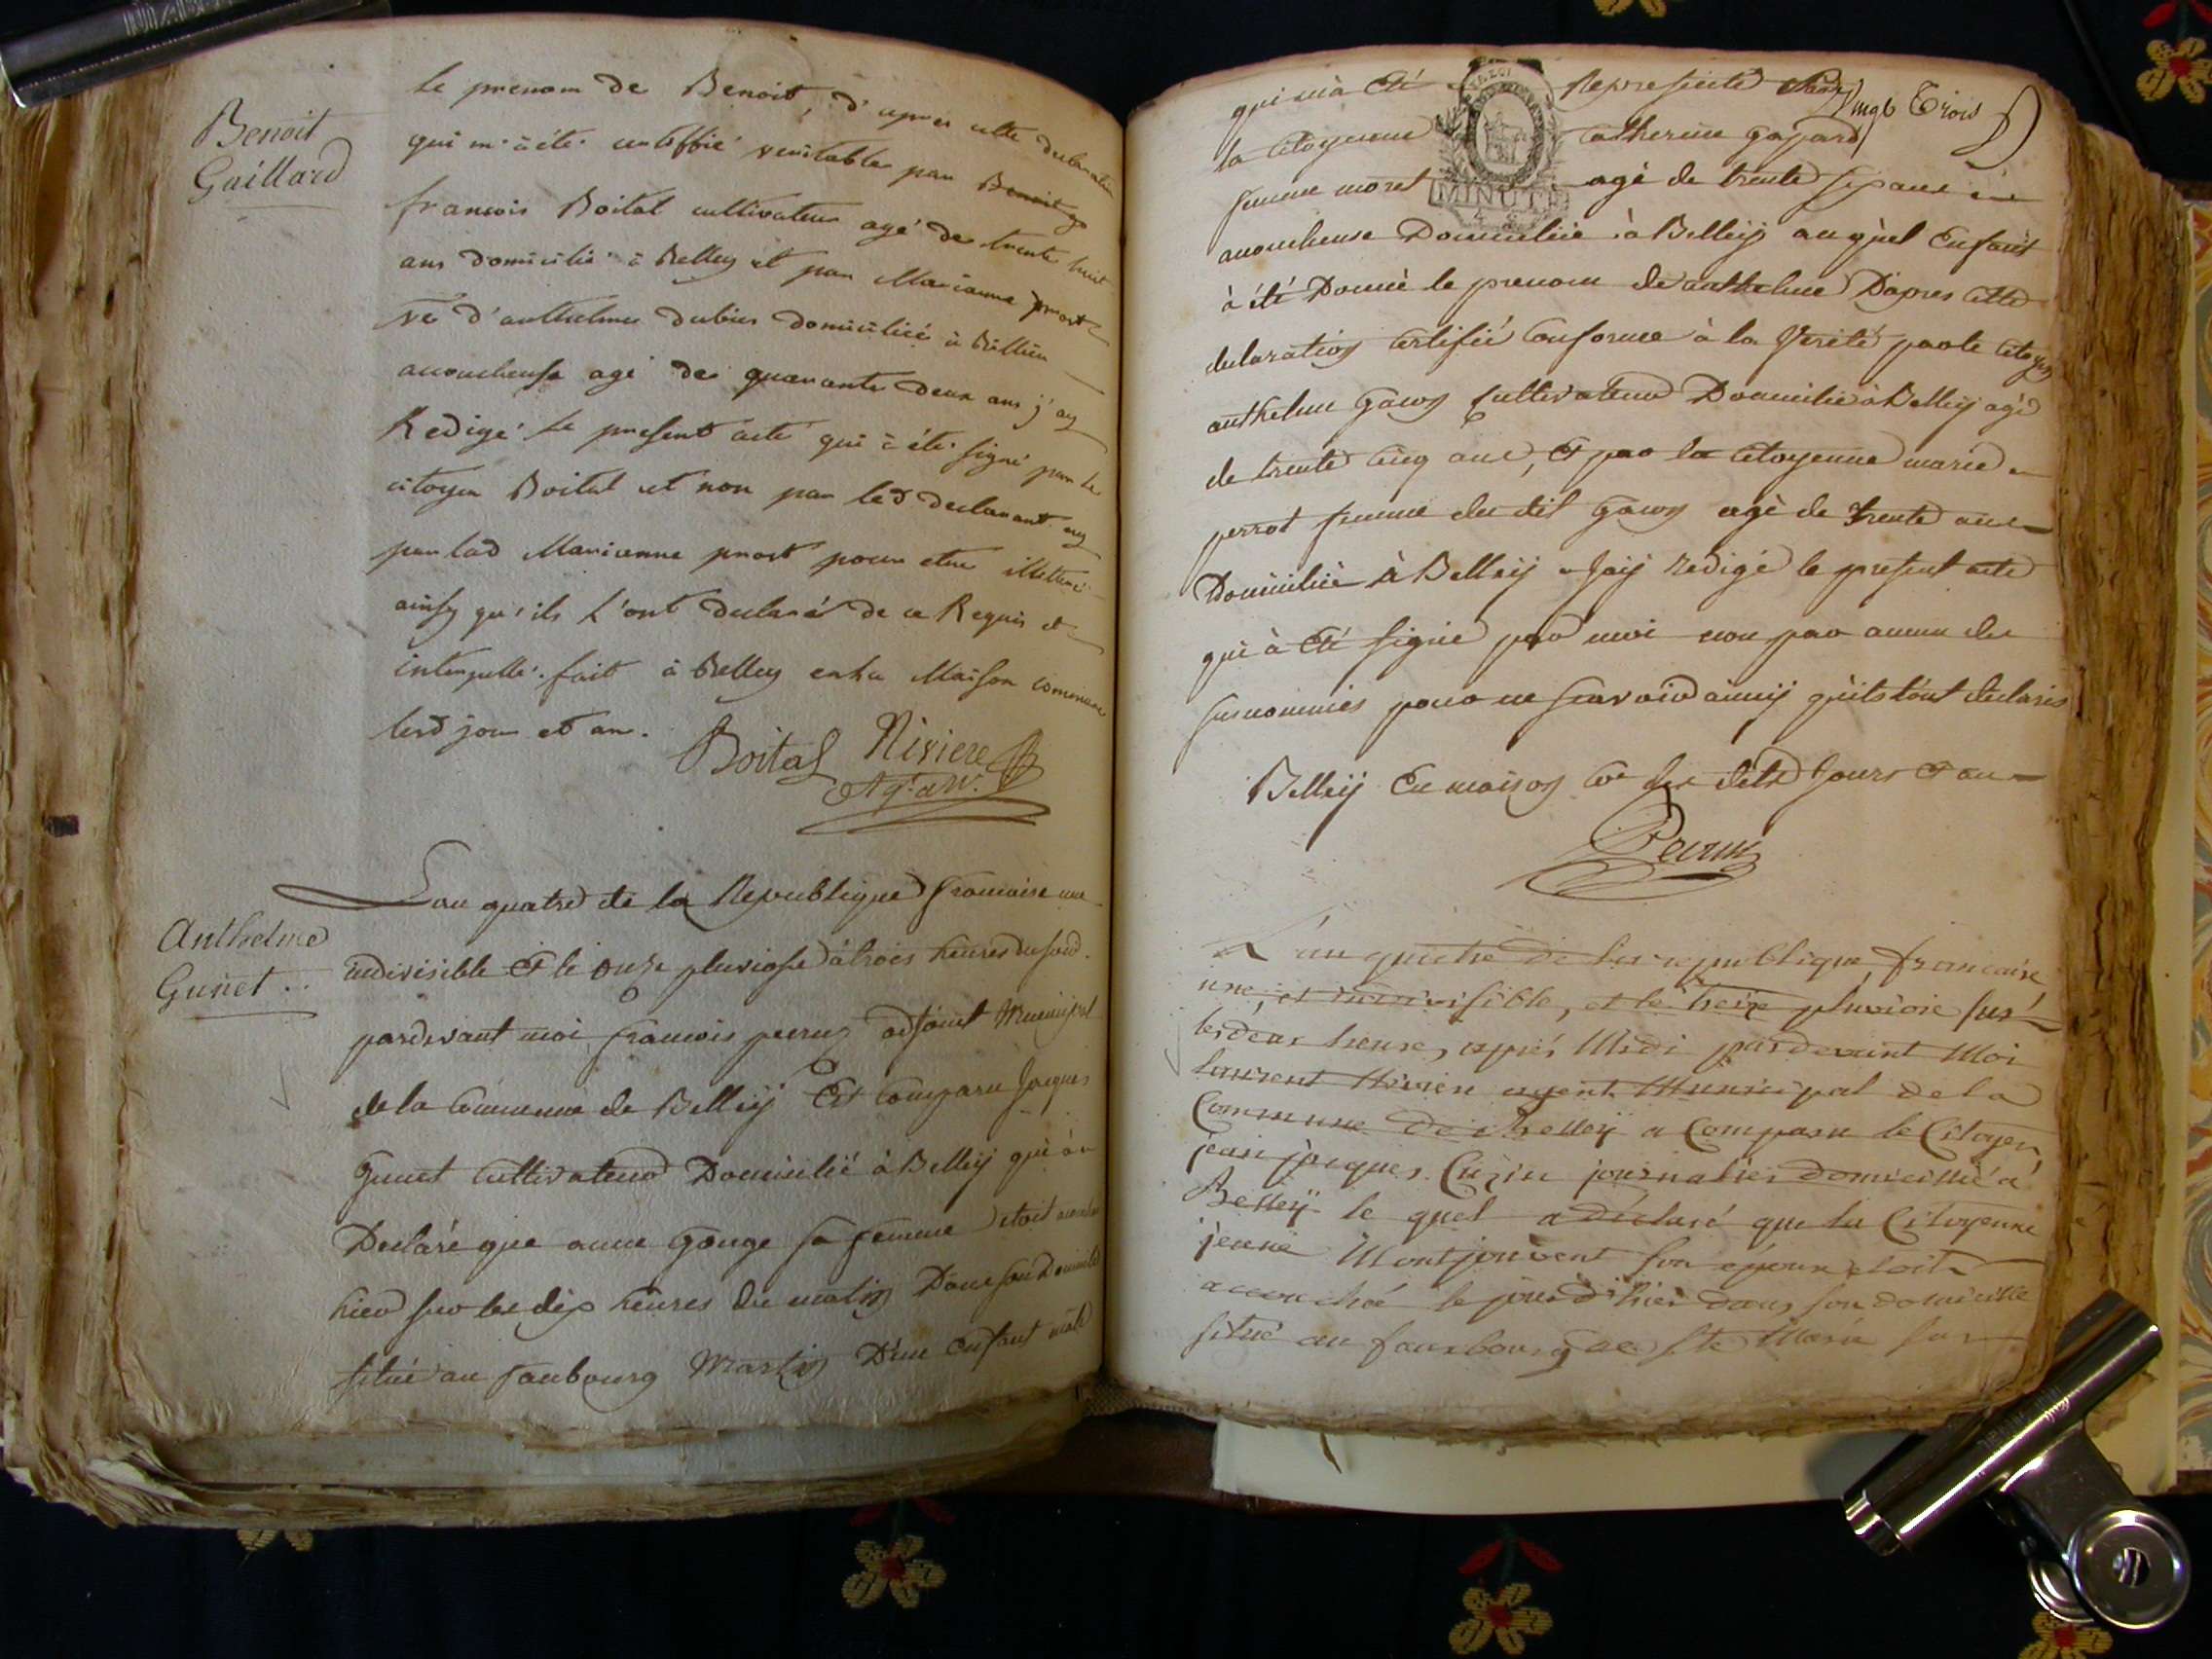 Benoit
Gaillard
le prenom de Benoit, d'apres cette declaration
qui m'a été certiffié veritable par Benoit
francois Boital cultivateur agé de trente huit
ans domicilié à Belley et par Marianne prost
ve d'anthelme dubien domiciliée à Bellein
accoucheuse agé de quarante deux ans j'ay
Redigé le present acte qui à été signé par le
citoyen Boital et non par led declarant ny
par lad Marianne prost pour etre illettré
ainsy qu'ils l'ont declaré de ce Requis et
interpellé. fait à Belley en la Maison commune
lesd jour et an.
Boital Niviere
Agt M.
Anthelme
Gunet
L'an quatre de la Republique francaise une
indivisible et le onze pluviose à trois heures du soir
pardevant moi francois perrin adjoint Municipal
de la Commune de Belley Est Comparu Jacques
Gunet Cultivateur Domicilié à Belley qui à
Declaré que anne Gonge sa femme etoit
hier sur les dix heures du matin Dans son Domicile
situé au faubourg Martin D'un enfant mâle
qui m'à Eté Representé Par
Vingt Trois
MINUTE
la Citoyenne Catherine Gapard
femme moret agé de trente ans
accoucheuse Domiciliée à Belley auquel Enfant
à été Donné le prenom de anthelme D'apres cette
declaration certifié conforme à la Verité par le Citoyen
anthelme Gawoy Cultivateur Domicilié à Belley agé
de trente cinq ans, Et par la Citoyenne marie
perrot femme du dit Gawoy agé de trente ans
Domiciliée à Belley Jay redigé le present acte
qui à Eté signé par moi non par aucun des
susnommés pour ne scavoir ainsy qu'ils l'ont declarés
Belley En maison Cne les dits Jours et an
Perrin
L'an quatre de la republique francaise
une, et indivisible, et le treize pluviose sur
les deux heures après Midi pardevant Moi
laurent Niviere agent Municipal de la
Commune de Belley a Comparu le Citoyen
jean jacques Cuzin journalier domicillié à
Belley le quel a déclaré que la Citoyenne
jeanne Montjouvent son épouse etoit
accouchée le jour d'hier dans son domicille
situé au fauxbourg de ste Marie sur